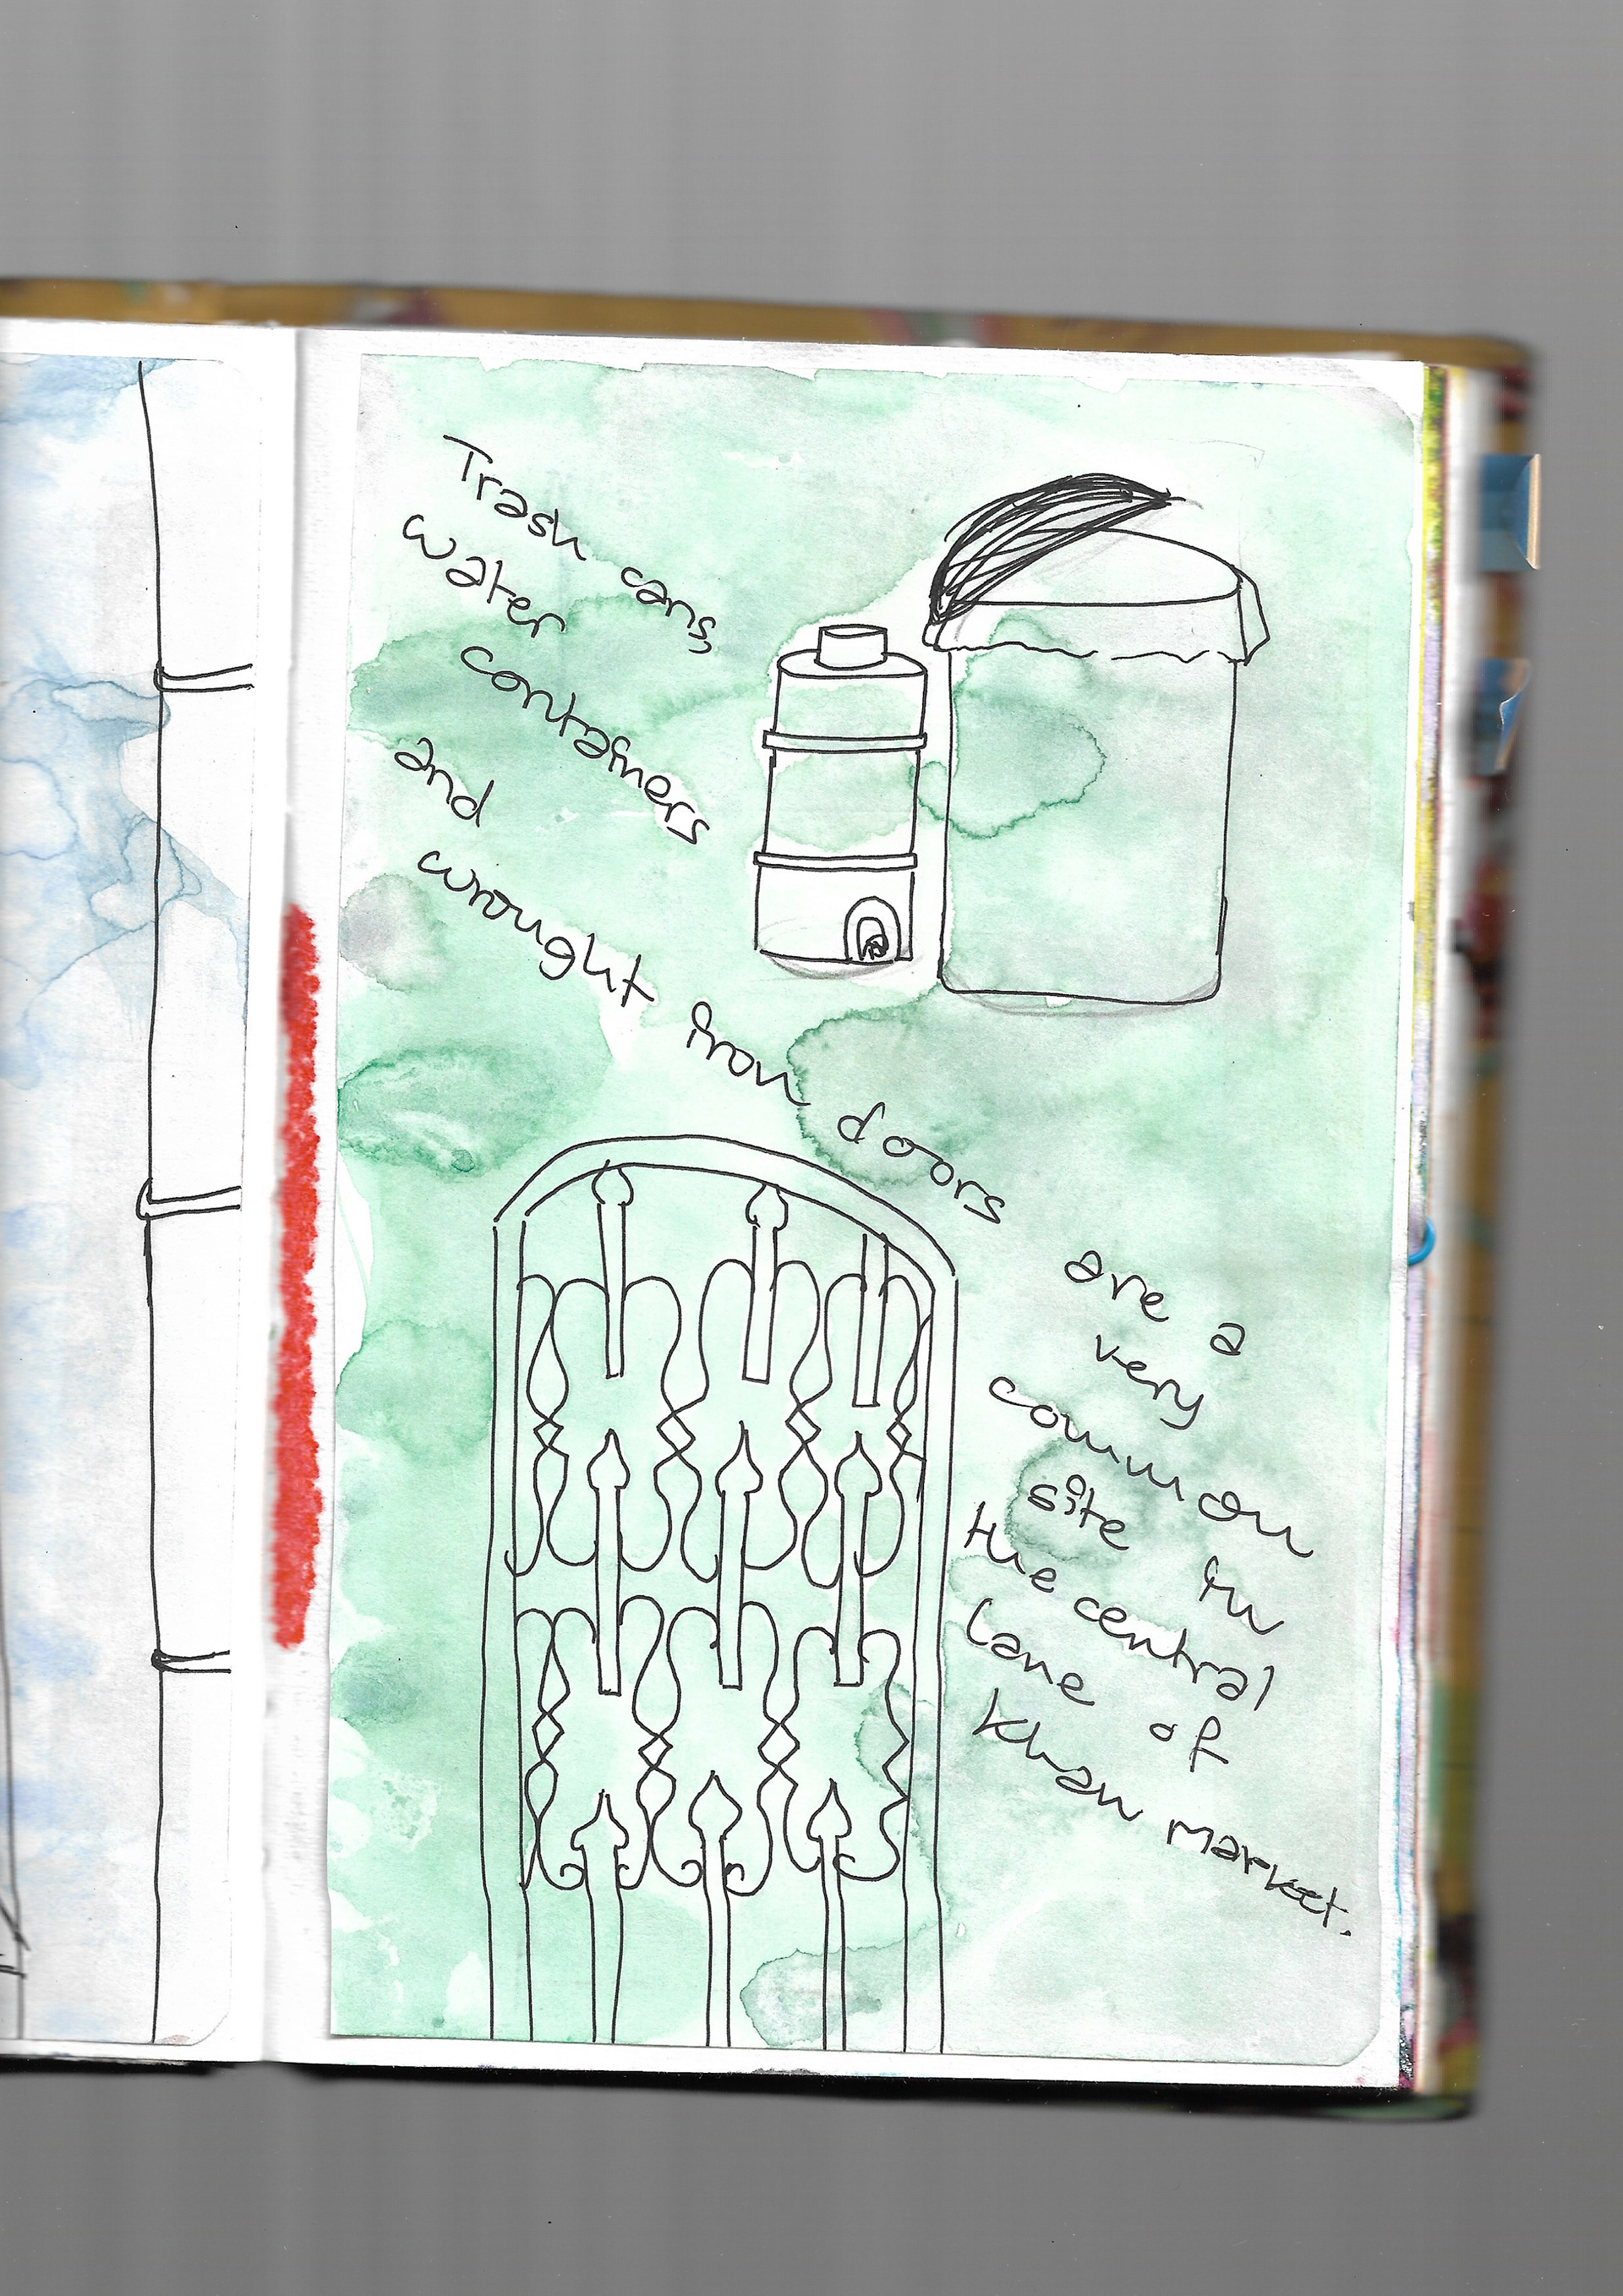 Trash cans,
water
containers
and
wrought iron doors
are a
very
common
site in
the central
lane of
Khan market.